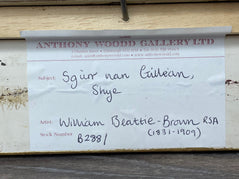 ANTHONY WOODD GALLERY LTD
Subject: Sgùrr nan Gillean,
Skye
Artist: William Beattie-Brown RSA
(1831-1909)
Stock Number B288/